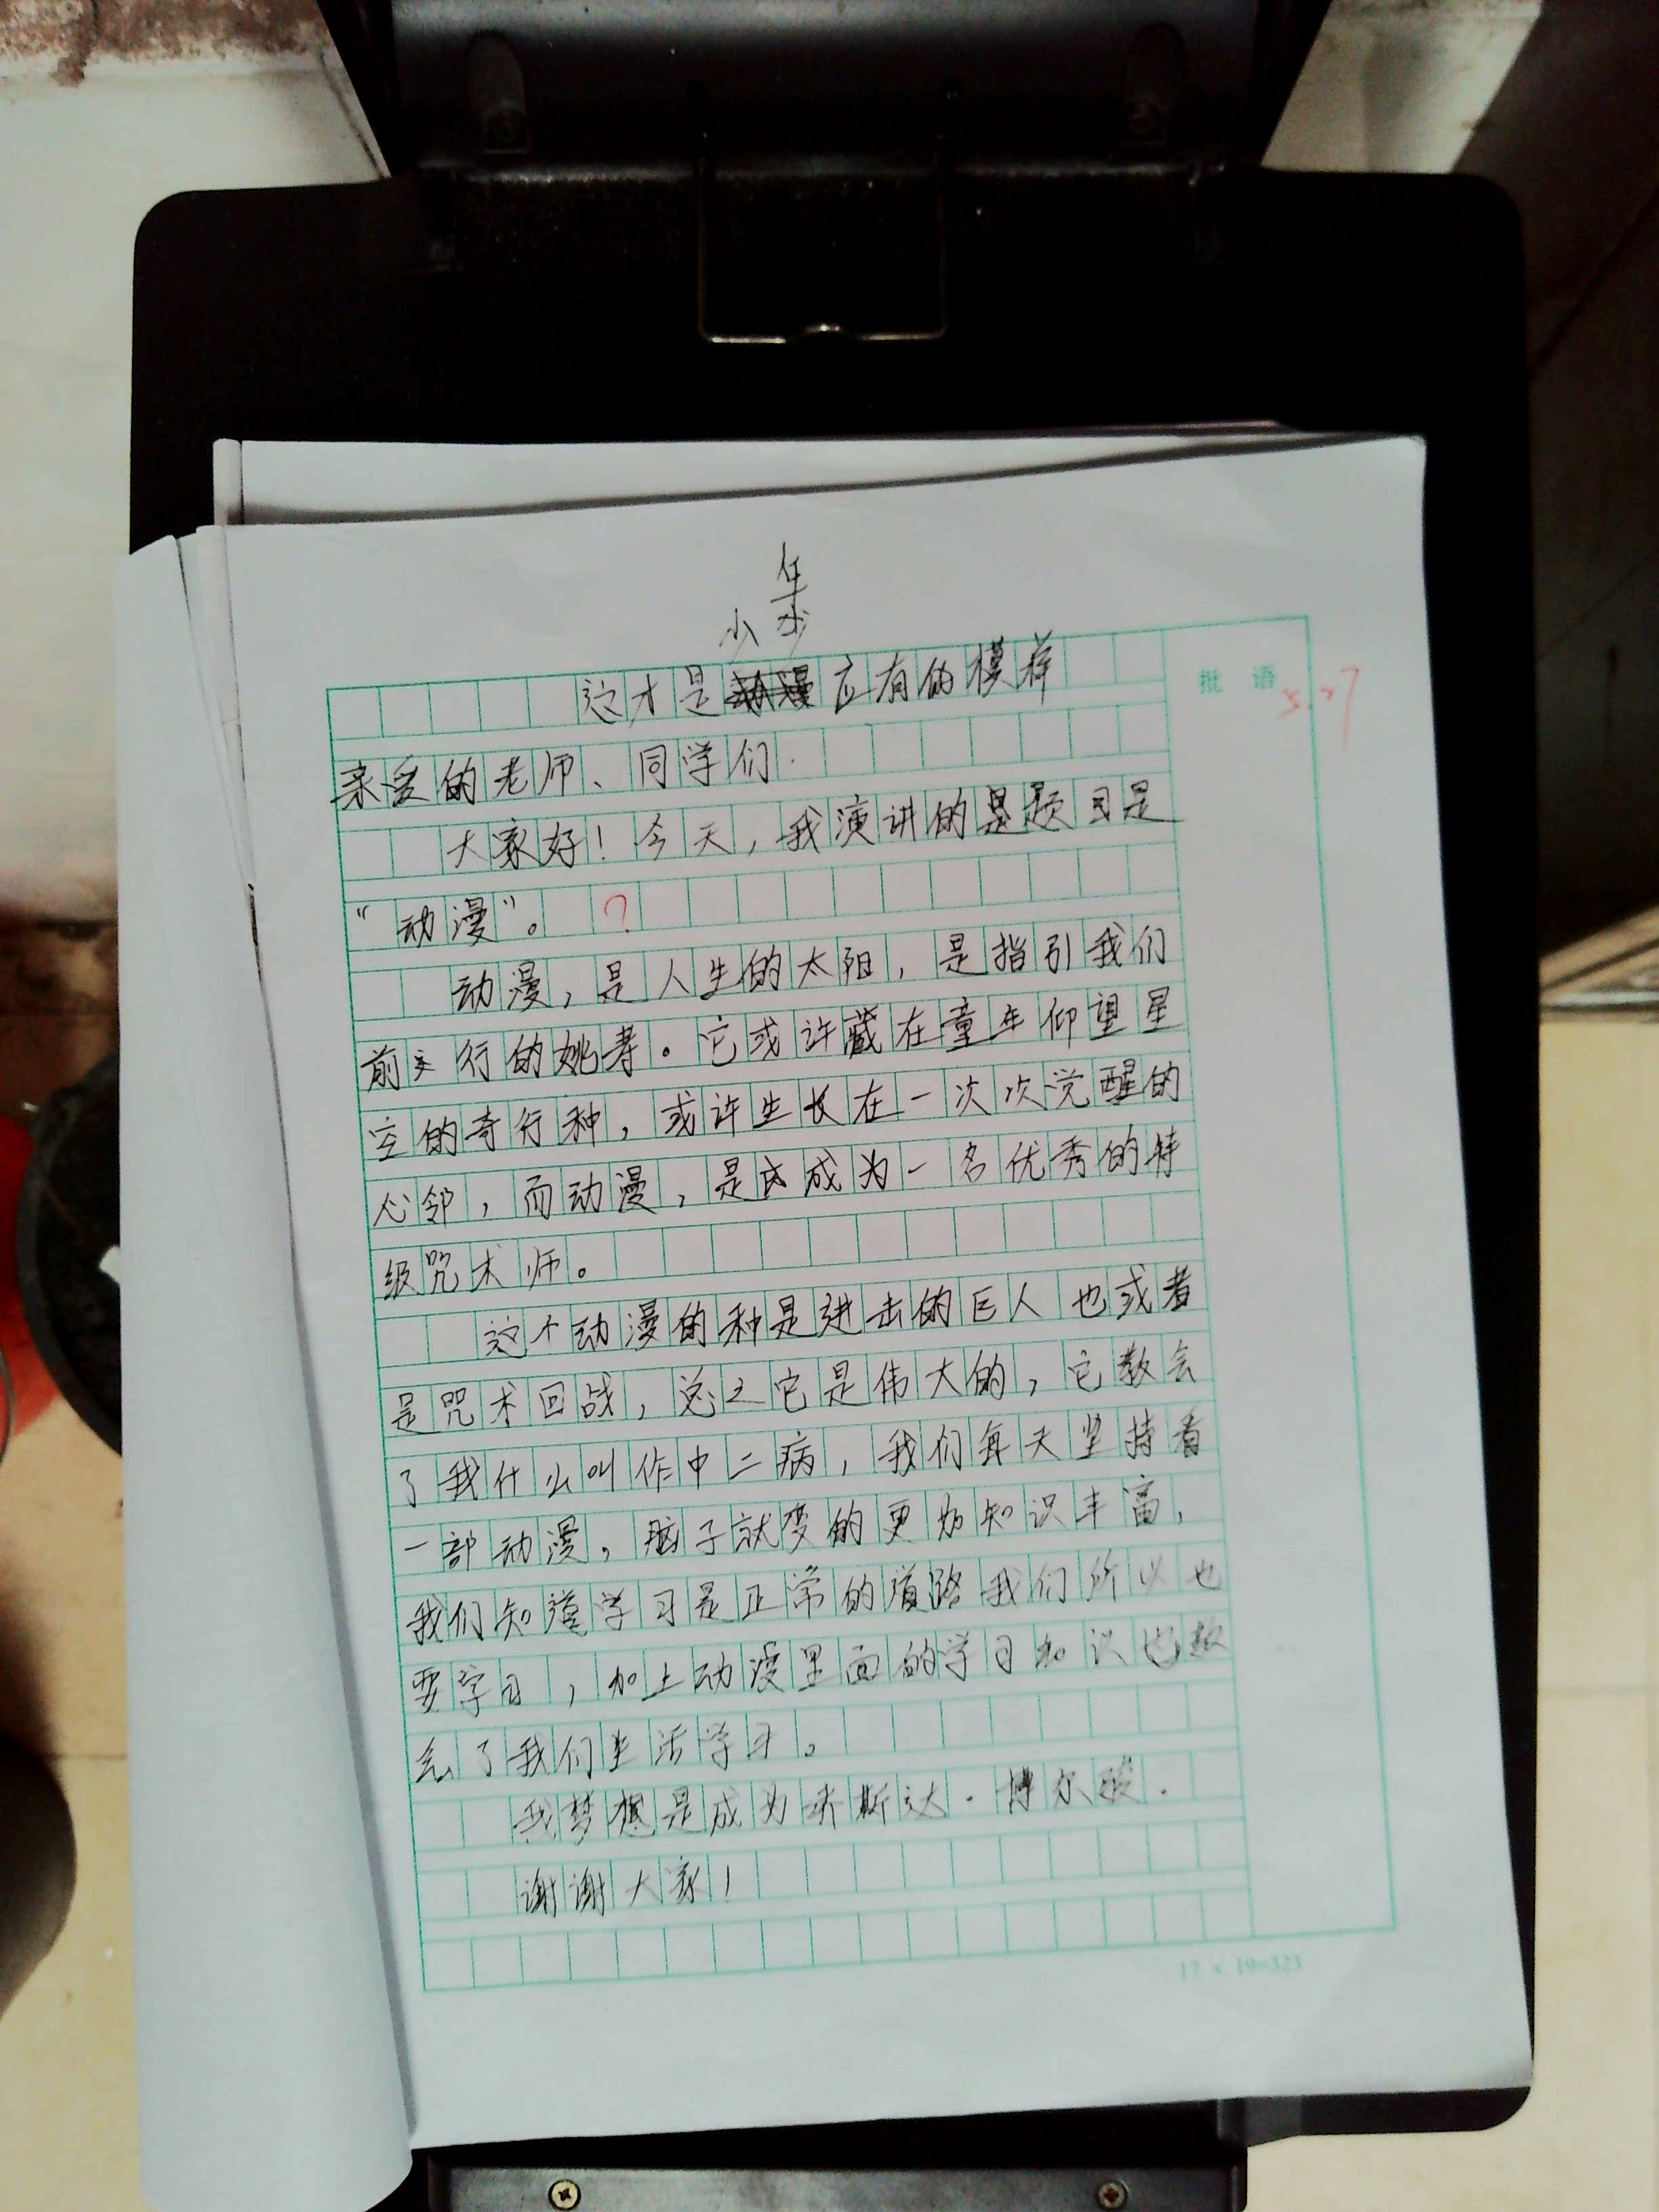 少年
这才是应有的模样
批 语
5.27
亲爱的老师、同学们
大家好！今天，我演讲的题目是
“动漫”。 ?
动漫，是人生的太阳，是指引我们
前行的姚寿。它或许藏在童年仰望星
空的奇行种，或许生长在一次次觉醒的
心邻，而动漫，是成为一名优秀的特
级咒术师。
这个动漫的种是进击的巨人也或者
是咒术回战，总之它是伟大的，它教会
了我什么叫作中二病，我们每天坚持看
一部动漫，脑子就变的更为知识丰富，
我们知道学习是正常的道路我们所以也
要学习，加上动漫里面的学习知识也教
会了我们生活学习。
我梦想是成为乔斯达·博尔
谢谢大家！
17 × 19=323